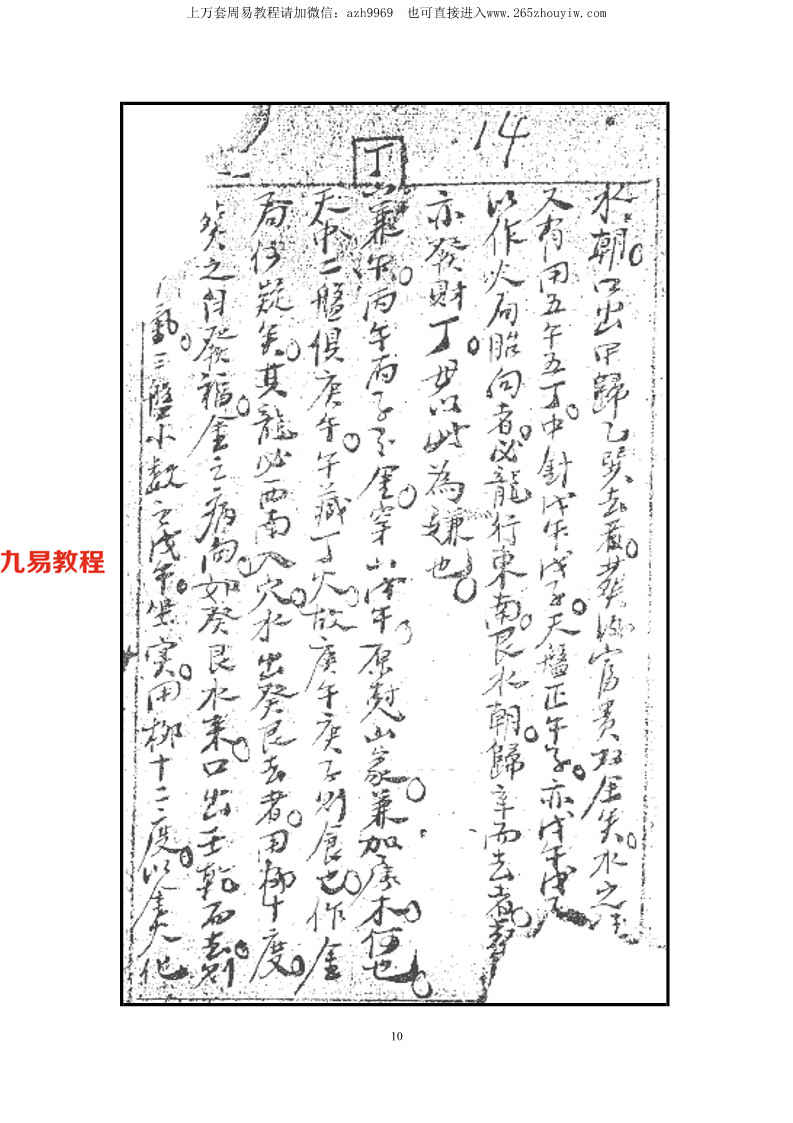 上万套周易教程请加微信：azh9969 也可直接进入www.265zhouyiw.com
14
水朝口出甲歸乙巽去屬葬汹富貴双全矣水之
又有用五午五丁中針戊午戊子天盤正午子亦戊午戊子
以作火局胎向者必龍行東南艮水朝歸辛而去者
亦發財丁毋以此為嫌也
丁 兼午丙午丙子分金穿山戊午原兌山家兼加房木何也
天中二盤俱庚午午藏丁火故庚午庚子則食也作金
局何疑矣其龍必西南入穴水出癸艮去者用柳十度
癸之自發福金之病向如癸艮水來口出壬乾而去則
氣三盤小數之戊午坐實用柳十二度以金火他
九易教程
10